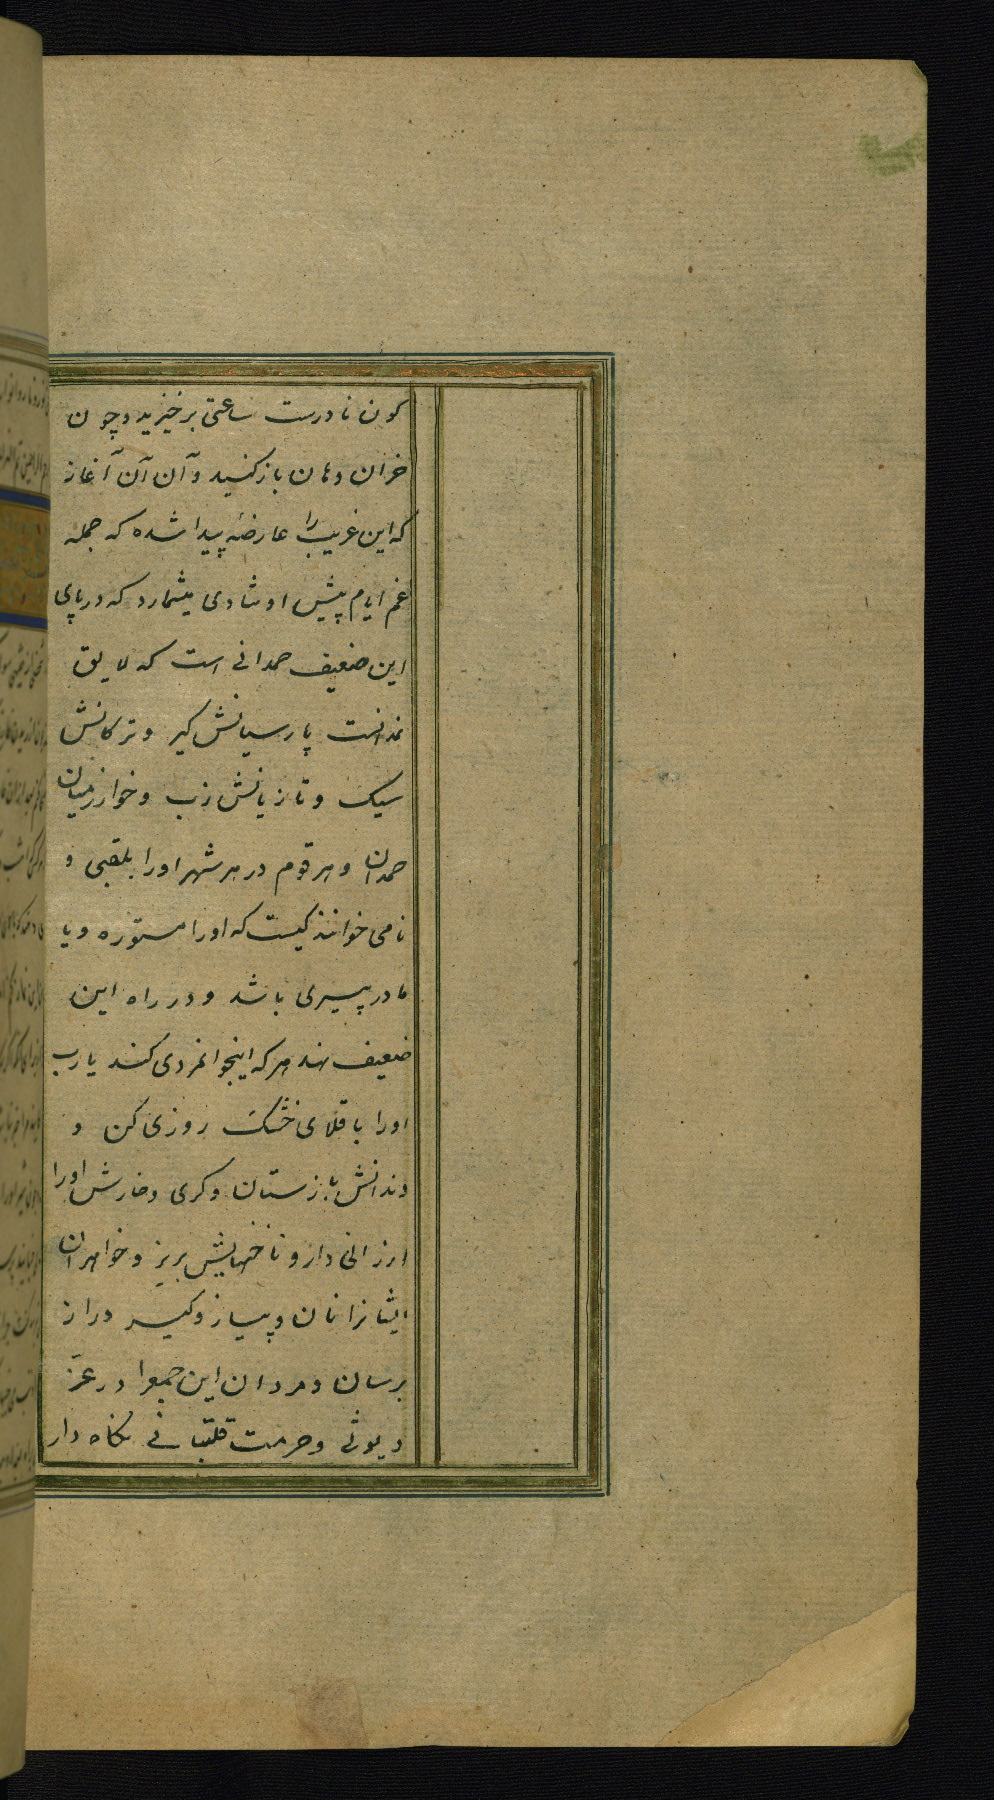 کون نادرست ساعتی برخیزید و چون
خران دهان باز کنید و آن آن آغاز
که این غریب را عارضهٔ پیدا شده که جمله
غم ایام پیش او شادی میشمارد که در پای
این ضعیف حمدانی است که لایق
نمدانست پارسیانش کیر و ترکانش
سیک و تازیانش زب و خوارزمیان
حمدان و هر قوم در هر شهر او را بلقبی و
نامی خوانند کیست که او را مستوره و یا
مادر پیری باشد و در راه این
ضعیف نهد هر که اینجوانمردی کند یارب
او را باقلای خشک روزی کن و
دندانش باز ستان و کری و خارش او را
ارزانی دار و ناخنهایش بریز و خواهران
ایشانرا نان و پیاز و کیر دراز
برسان و مردان این جمع را در عز
دیوثی و حرمت قلتبانی نکاه دار